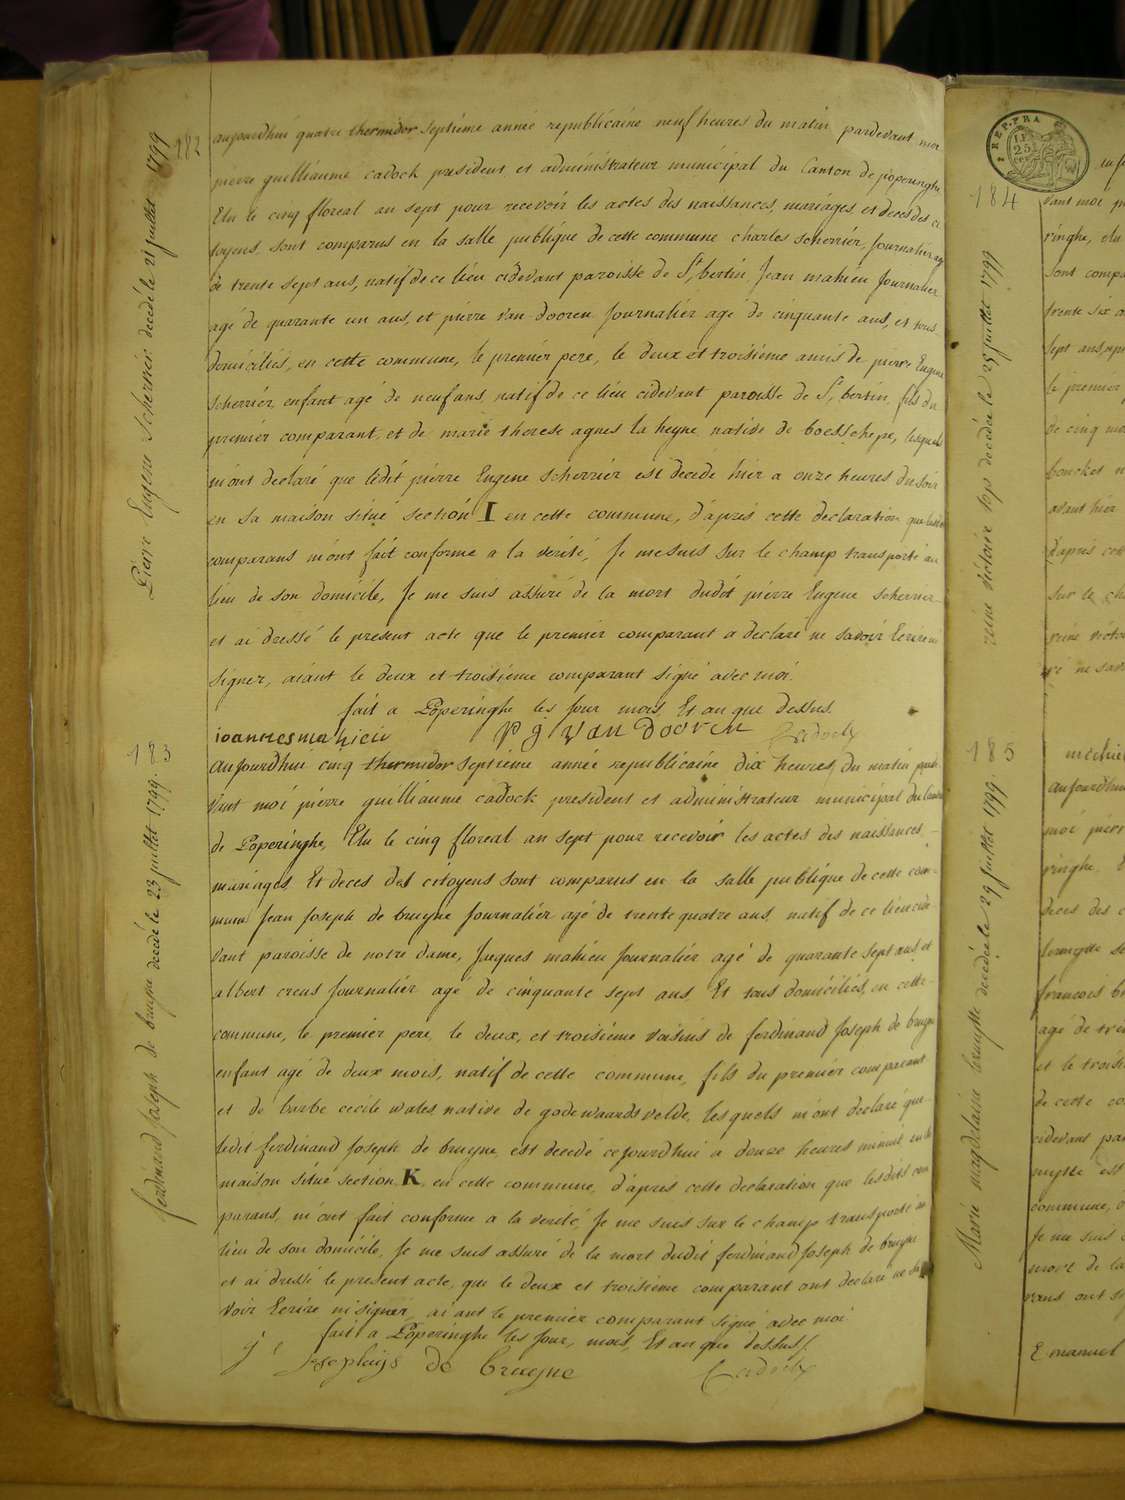 182
Pierre Eugene Scherrier decedé le 21 juillet 1799
aujourdhui quatre thermidor septiéme année republicaine neuf heures du matin pardevant moi
pierre guilliaume cadock president et administrateur municipal du Canton de poperinghe
Elu le cinq floreal an sept pour recevoir les actes des naissances, mariages, et deces des ci
toyens, sont comparus en la salle publique de cette commune charles scherriér, journaliér agé
de trente sept ans, natif de ce lieu cidevant paroisse de St bertin, Jean mahieu Journalier
agé de quarante un ans, et piérre Van dooren Journaliér agé de cinquante ans, et tous
domiciliés, en cette commune, le premiér pere, le deux et troisiéme amis de piérre Eugene
scherriér, enfant agé de neuf ans, natif de ce lieu cidevant paroisse de St bertin, fils du
premiér comparant, et de marie therese agnes la heyne native de boesschepe, lesquels
m'ont declaré que ledit piérre Eugene scherriér est decedé hiér a onze heures du soir
en sa maison situé section I en cette commune, d'aprés cette declaration que lesdits
comparans m'ont fait conforme a la verité, Je me suis sur le champ transporté au
lieu de son domicile, Je me suis assuré de la mort dudit piérre Eugene scherrier
et ai dressé le present acte que le premiér comparant a declaré ne savoir Ecrire ni
signer, aiant le deux et troisiéme comparant signé avec moi.
fait a Poperinghe les Jour mois Et an que dessus.
ioannes mahieu P J Van Dooren Cadock
183
ferdinand joseph de bruyne decedé le 23 juillet 1799.
aujourdhui cinq thermidor septiéme année republicaine dix heures du matin parde
Vant moi piérre guilliaume cadock president et administrateur municipal du Canton
de Poperinghe, Elu le cinq floreal an sept pour recevoir les actes des naissances,
mariages, Et deces des citoyens sont comparus en la salle publique de cette com-
mune Jean Joseph de bruyne Journaliér agé de trente quatre ans natif de ce lieu cide
vant paroisse de notre dame, Jacques mahieu Journaliér agé de quarante sept ans, et
albert creus Journaliér agé de cinquante sept ans Et tous domiciliés, en cette
commune, le premiér pere, le deux, et troisiéme Voisins de ferdinand Joseph de bruyne
enfant agé de deux mois, natif de cette commune, fils du premiér comparant
et de barbe cecile wales native de godewaardsvelde, lesquels m'ont declaré que
ledit ferdinand Joseph de bruyne est decedé cejourdhui a douze heures minuit en sa
maison situé section K en cette commune, d'aprés cette declaration que lesdits com
parans, m'ont fait conforme a la verité, Je me suis sur le champ transporté au
lieu de son domicile, Je me suis assuré de la mort dudit ferdinand Joseph de bruyne
et ai dressé le present acte, que le deux et troisiéme comparant ont declaré ne sa
voir Ecrire ni signer, aiant le premiér comparant signé avec moi
fait a Poperinghe les Jour, mois, Et an que dessus.
josephus de bruyne Cadock
REP. FRA
184
reine victoire top decedée le 25 juillet 1799
vant moi
ringhe, elu
sont compa
trente six a
sept ans,
le premier
de cinq mo
bouckes n
avant hier
d'aprés cet
sur le ch
reine victo
ré ne sav
185
Marie magdelaine bruytte decedée le 29 juillet 1799.
michie
aujourdhui
moi pierr
ringhe, E
deces des c
francois br
agé de tre
et le troisi
de cette co
cidevant pa
commune, d
Je me suis
mort de la
rans ont si
Emanuel